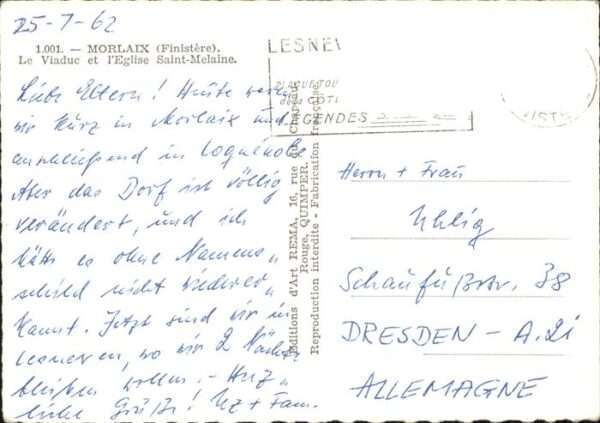 25-7-62
1.001. — MORLAIX (Finistère).
Le Viaduc et l'Eglise Saint-Melaine.
Liebe Eltern! Heute waren
wir kurz in Morlaix und
anschließend in Loquénolé
Aber das Dorf ist völlig
verändert, und ich
hätte es ohne Namens„
schild nicht wieder„
kannt. Jetzt sind wir in
Lesneven, wo wir 2 Nächte
bleiben wollen. - Herz„
liche Grüße! + Fam.
Editions d'Art REMA, 16, rue du Chapeau
Rouge, QUIMPER.
Reproduction interdite - Fabrication française
LESNEV
TOU
CÔT
GENDES
Herrn + Frau
Uhlig
Schaufußstr. 38
DRESDEN - A.21
ALLEMAGNE